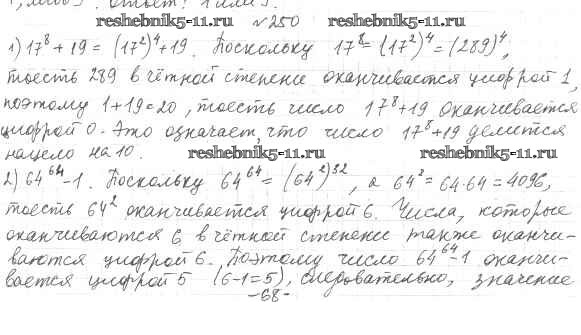 reshebnik5-11.ru
reshebnik5-11.ru
№250
1) 17⁸+19=(17²)⁴+19. Поскольку 17⁸=(17²)⁴=(289)⁴,
тоесть 289 в чётной степени оканчивается цифрой 1,
поэтому 1+19=20, тоесть число 17⁸+19 оканчивается
цифрой 0. Это означает, что число 17⁸+19 делится
нацело на 10.
reshebnik5-11.ru
reshebnik5-11.ru
2) 64⁶⁴-1. Поскольку 64⁶⁴=(64²)³², а 64²=64·64=4096,
тоесть 64² оканчивается цифрой 6. Числа, которые
оканчиваются 6 в чётной степени также оканчи-
ваются цифрой 6. Поэтому число 64⁶⁴-1 оканчи-
вается цифрой 5 (6-1=5), следовательно, значение
-68-